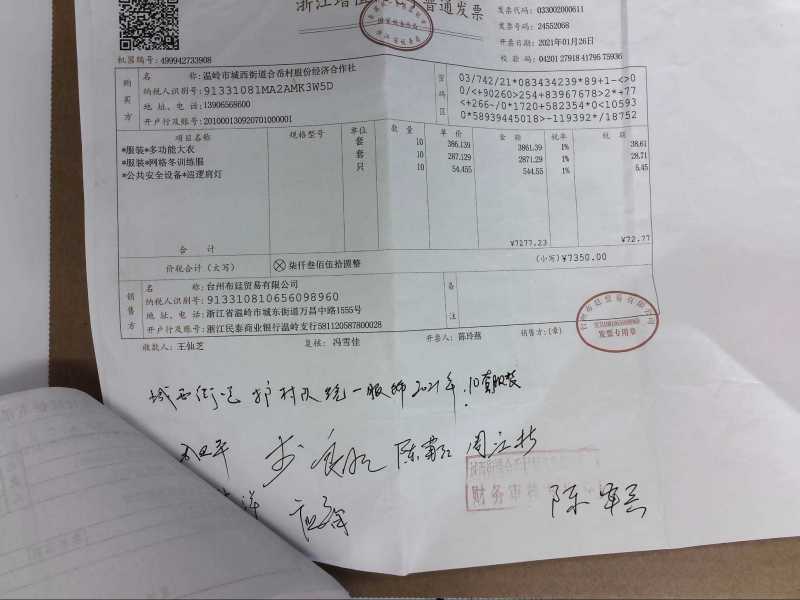 浙江增值 普通发票
发票代码: 033002000611
发票号码: 24552068
开票日期: 2021年01月26日
机器编号: 499942733908
校验码: 04201 27918 41795 75936
购买方
名称: 温岭市城西街道合岙村股份经济合作社
纳税人识别号: 91331081MA2AMK3W5D
地址、电话: 13906568600
开户行及账号: 201000130920701000001
密码区
03/742/21*083434239*89+1-<>0
0/<+90260>254+83967678>2*+77
<+266-/0*1720+582354*0<10593
0*58939445018>-119392*/18752
项目名称 规格型号 单位 数量 单价 金额 税率 税额
*服装*多功能大衣 套 10 386.139 3861.39 1% 38.61
*服装*网格冬训练服 套 10 287.129 2871.29 1% 28.71
*公共安全设备*巡逻肩灯 只 10 54.455 544.55 1% 5.45
合计 ¥7277.23 ¥72.77
价税合计(大写) ⊗柒仟叁佰伍拾圆整 (小写)¥7350.00
销售方
名称: 台州布廷贸易有限公司
纳税人识别号: 913310810656098960
地址、电话: 浙江省温岭市城东街道万昌中路1555号
开户行及账号: 浙江民泰商业银行温岭支行581120587800028
备注
收款人: 王仙芝 复核: 冯雪佳 开票人: 陈玲燕 销售方:(章)
台州布廷贸易有限公司
913310810656098960
发票专用章
城西街道 护村队统一服饰2021年.10套服装
陈 周江
城西街道合岙村
财务审核
陈军